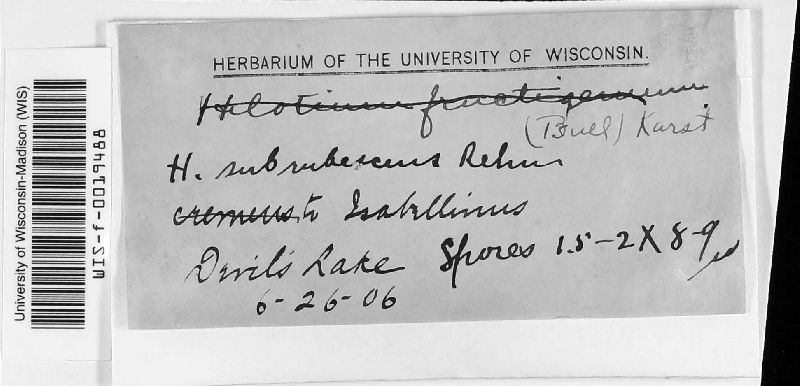 University of Wisconsin-Madison (WIS)
WIS-f-0019488
HERBARIUM OF THE UNIVERSITY OF WISCONSIN.
Helotium fructigenum
(Bull) Karst
H. subrubescens Rehm
cremeus to Isabellinus
Devil's Lake Spores 1.5-2 X 8-9
6-26-06